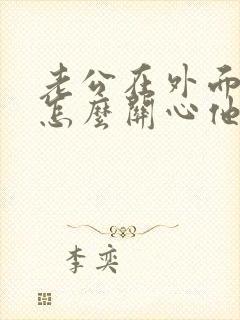 老公在外面
怎麼關心他
李奕